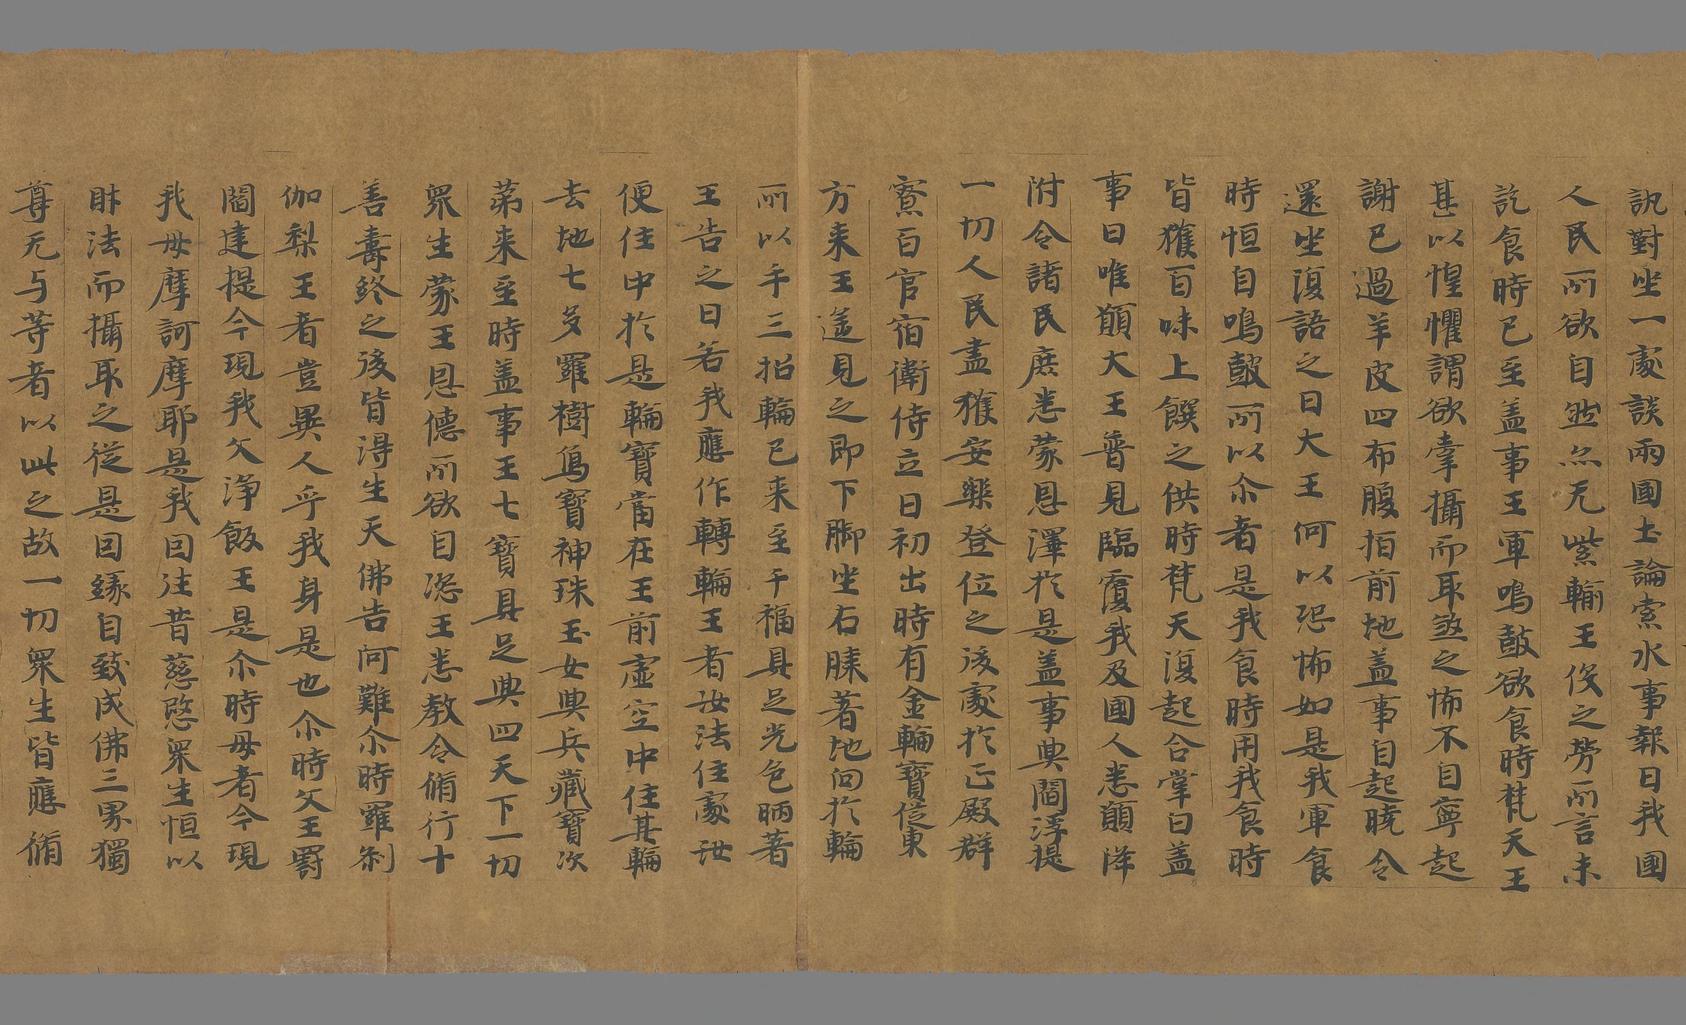 訊對坐一處談兩國土論索水事報曰我國
人民所欲自然亦无紫輸王役之勞所言未
訖食時已至蓋事王軍鳴皷欲食時梵天王
甚以惶懼謂欲牽攝而取煞之怖不自寧起
謝已過羊皮四布腹拍前地蓋事自起曉令
還坐復語之曰大王何以恐怖如是我軍食
時恒自鳴皷所以尒者是我食時用我食時
皆獲百味上饌之供時梵天復起合掌白蓋
事曰唯願大王普見臨覆我及國人悉願降
附令諸民庶悉蒙恩澤於是蓋事典閻浮提
一切人民盡獲安樂登位之後處於正殿群
寮百官宿衛侍立日初出時有金輪寶從東
方来王遥見之即下脚坐右膝著地向於輪
所以手三招輪已来至千福具足光色晒著
王告之曰若我應作轉輪王者汝法住處汝
便住中於是輪寶當在王前虛空中住其輪
去地七多羅樹鳥寶神珠玉女典兵藏寶次
苐来至時蓋事王七寶具足典四天下一切
衆生蒙王恩德所欲自恣王悉教令脩行十
善壽終之後皆得生天佛告阿難尒時罹刹
伽梨王者豈異人乎我身是也尒時父王罽
闍達提今現我父淨飯王是尒時母者今現
我母摩訶摩耶是我曰往昔慈愍衆生恒以
財法而攝取之從是因緣自致成佛三界獨
尊无与等者以此之故一切衆生皆應脩